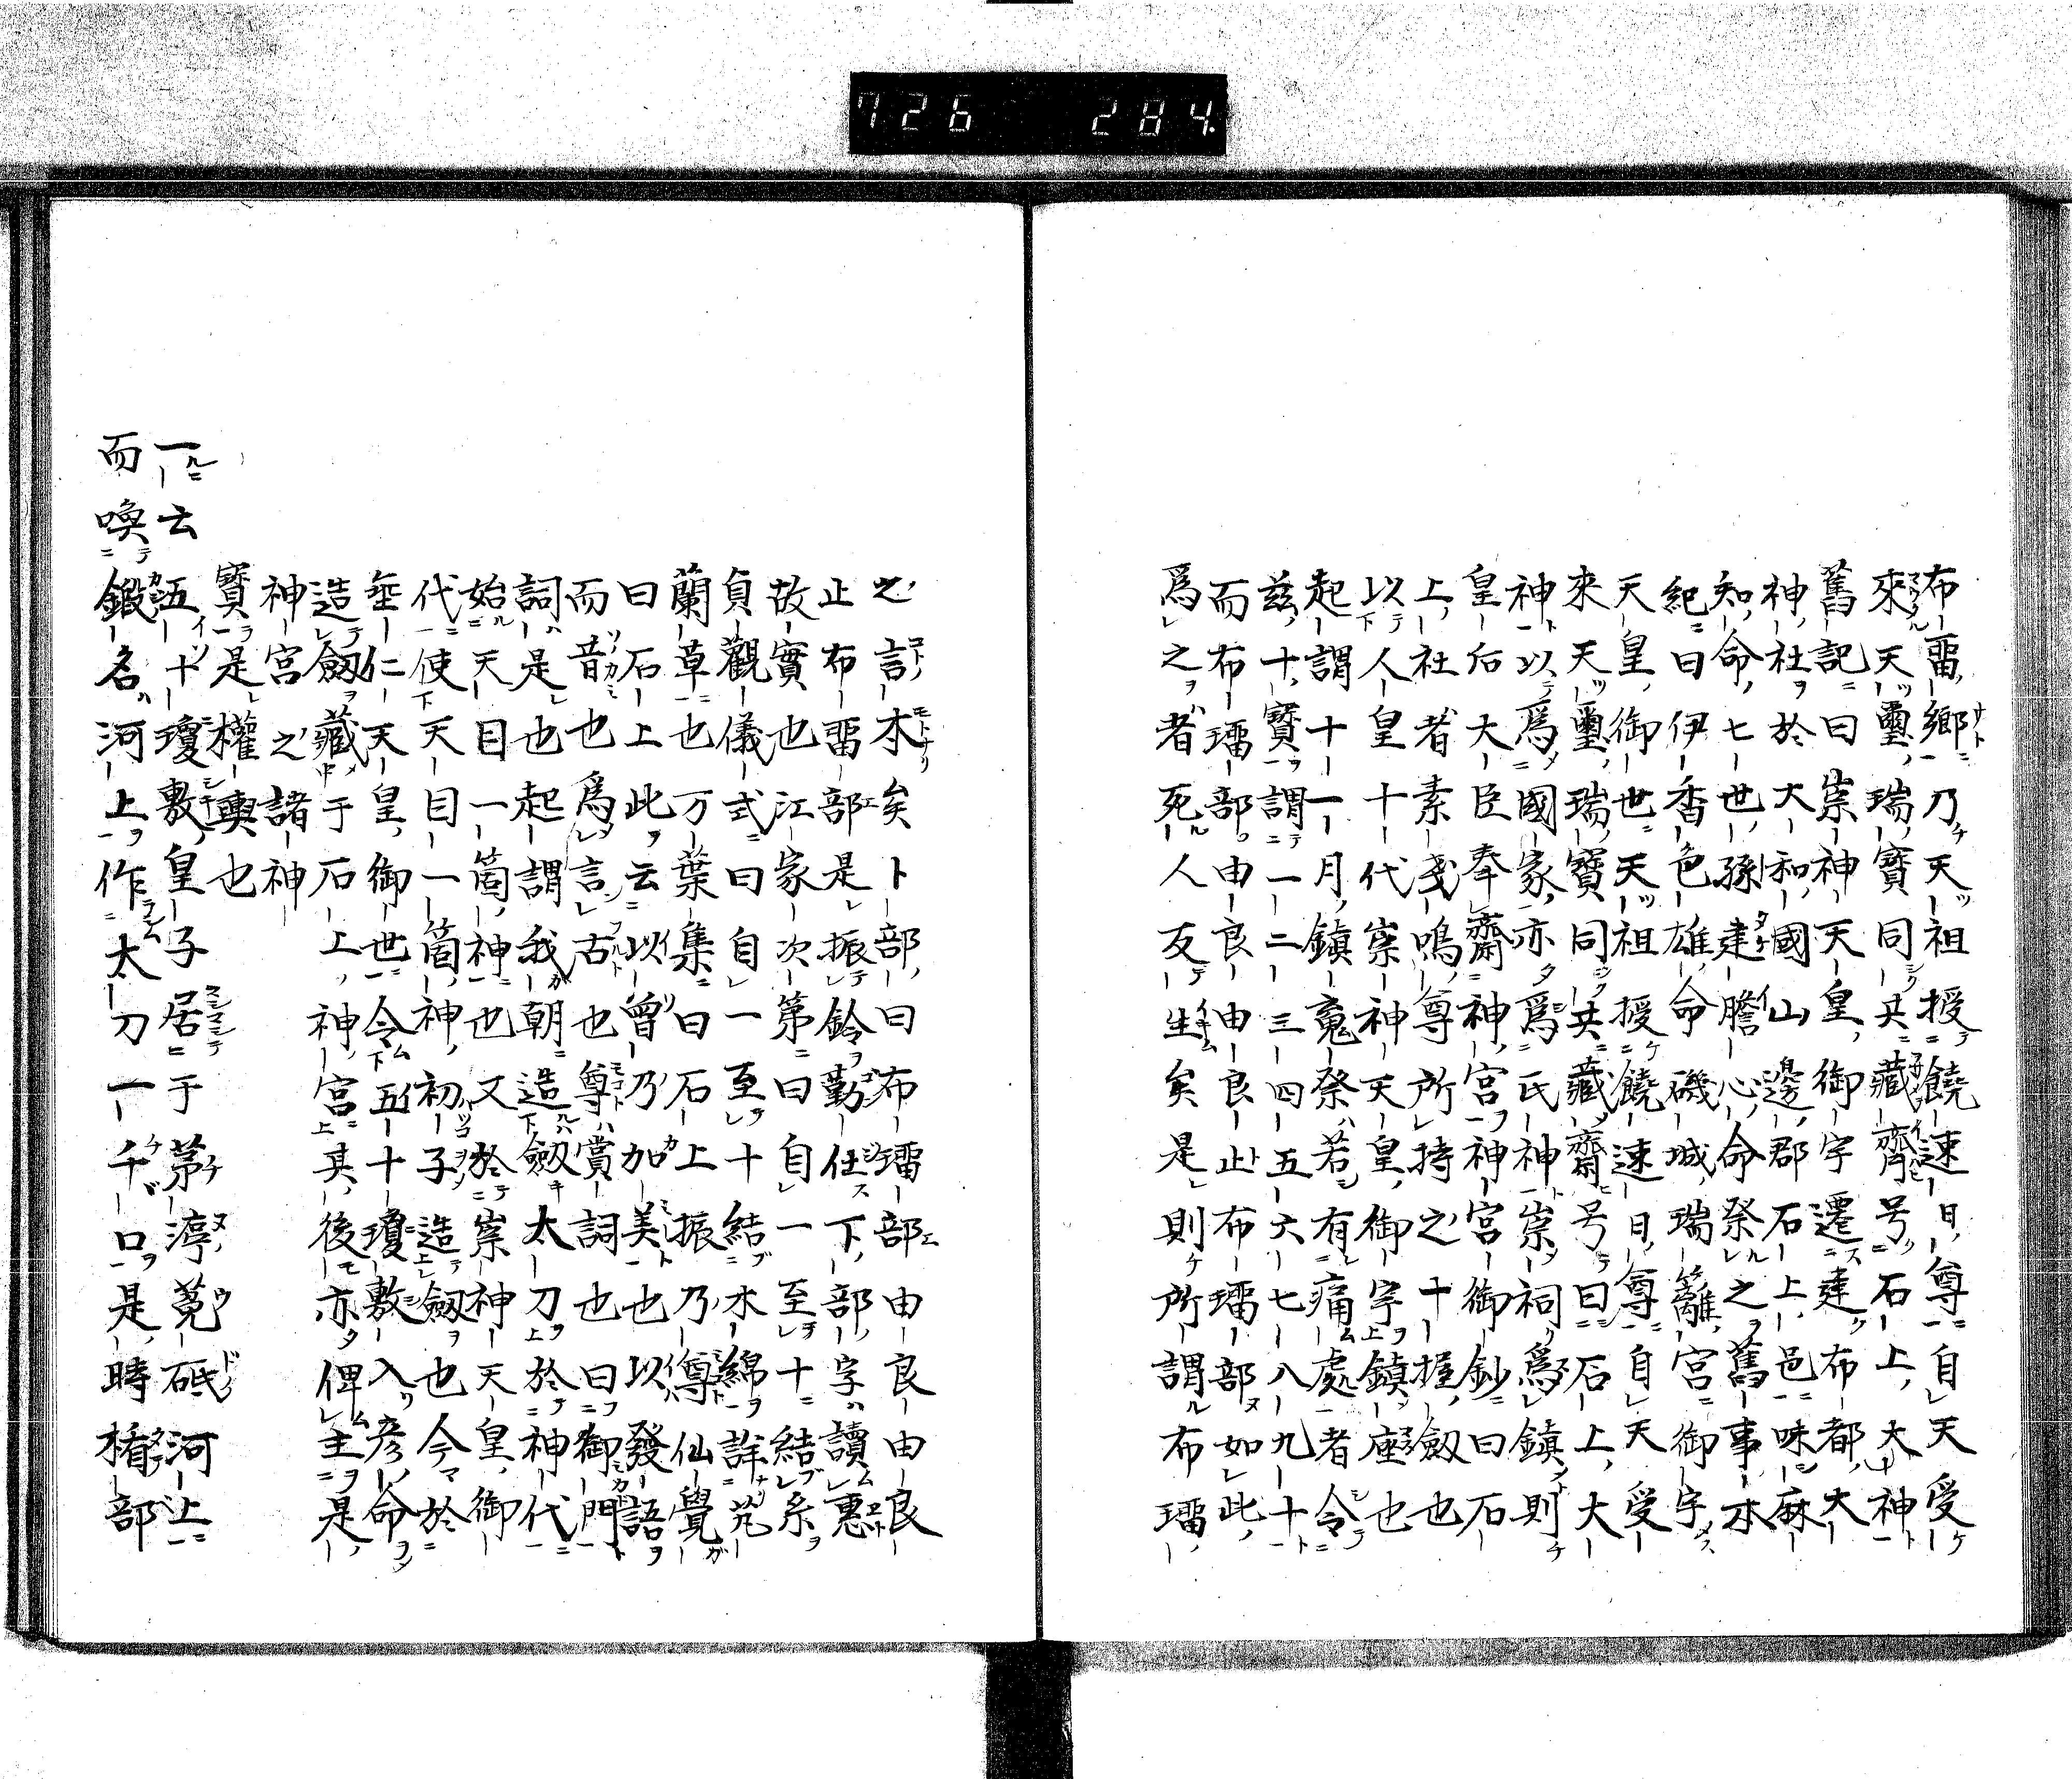 726 284
布留郷乃天祖授饒速日尊自天受
來天璽瑞寶同共藏齋号石上大神
舊記曰崇神天皇御宇遷建布都大
神社於大和國山邊郡石上邑味麻
知命七世孫建膽心命祭之舊事本
紀曰伊香色雄命磯城瑞籬宮御宇
天皇御世天祖授饒速日尊自天受
來天璽瑞寶同共藏齋号曰石上大
神以爲國家亦爲氏神崇祠爲鎮則
皇后大臣奉齋神宮神宮御鈔曰石
上社者素戔鳴尊所持之十握劔也
以人皇十代崇神天皇御宇鎮座也
起謂十一月鎮䰟祭若有痛處者令
茲十寶謂一二三四五六七八九十
而布瑠部由良由良止布瑠部如此
爲之者死人反生矣是則所謂布瑠
之言本矣卜部曰布瑠部由良由良
止布畱部是振鈴勤仕下部字讀惠
故實也江家次第曰自一至十結系
貞觀儀式曰自一至十結木綿訖
蘭草也万葉集曰石上振乃尊仙覺
曰石上此云以曾乃加美也以發語
而音也爲言古也尊賞詞也曰御門
詞是也起謂我朝造劔太刀於神代
始天目一箇神也又於崇神天皇御
代使天目一箇神初子造劔也今於
垂仁天皇御世令五十瓊敷入彦命
造劔藏于石上神宮其後亦俾主是
神宮之諸神
寶是權輿也
一云五十瓊敷皇子居于茅渟菟砥河上
而喚鍛名河上作太刀一千口是時楯部